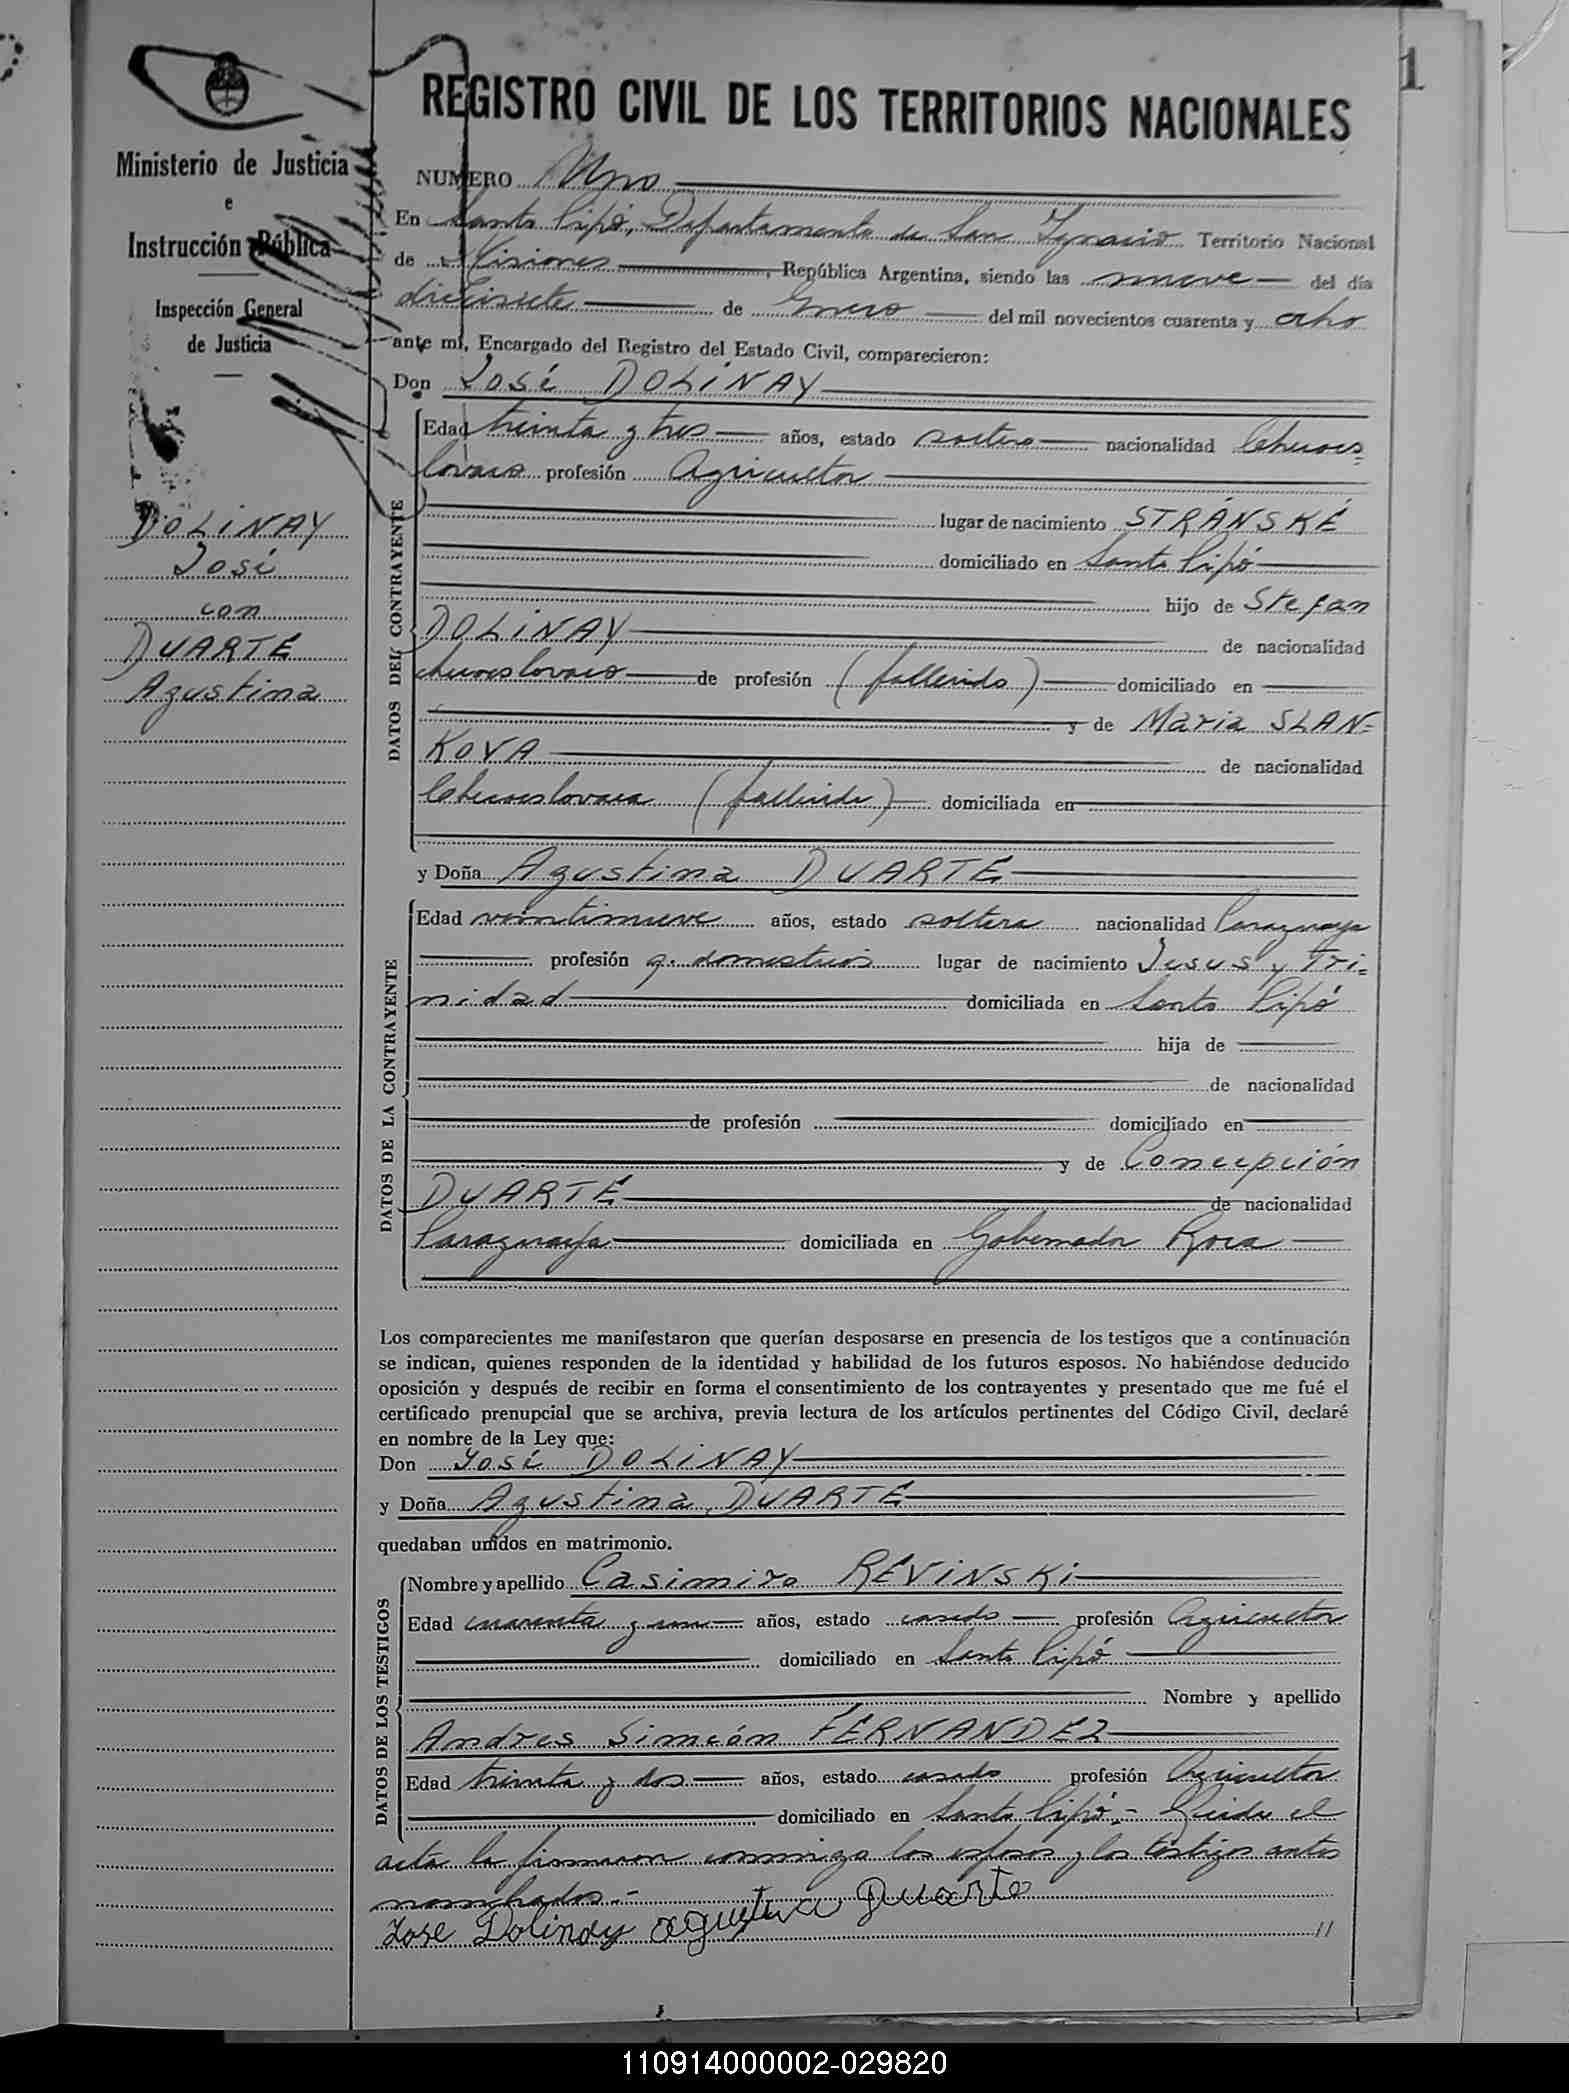 1
REGISTRO CIVIL DE LOS TERRITORIOS NACIONALES
Ministerio de Justicia
e
Instrucción Pública
Inspección General
de Justicia
DOLINAY
José
con
DUARTE
Agustina
NUMERO Uno
En Santo Pipó, Departamento de San Ignacio Territorio Nacional
de Misiones, República Argentina, siendo las nueve del día
diecisiete de Enero del mil novecientos cuarenta y ocho
ante mí, Encargado del Registro del Estado Civil, comparecieron:
Don José DOLINAY
DATOS DEL CONTRAYENTE
Edad treinta y tres años, estado soltero nacionalidad Checoes=
lovaco profesión Agricultor
lugar de nacimiento STRÁNSKÉ
domiciliado en Santo Pipó
hijo de Stefan
DOLINAY de nacionalidad
checoeslovaco de profesión (fallecido) domiciliado en
y de Maria SLAN=
KOVA de nacionalidad
Checoeslovaca (fallecida) domiciliada en
y Doña Agustina DUARTE
DATOS DE LA CONTRAYENTE
Edad veintinueve años, estado soltera nacionalidad Paraguaya
profesión q. domesticos lugar de nacimiento Jesus y Tri=
nidad domiciliada en Santo Pipó
hija de
de nacionalidad
de profesión domiciliado en
y de Concepción
DUARTE de nacionalidad
Paraguaya domiciliada en Gobernador Roca
Los comparecientes me manifestaron que querían desposarse en presencia de los testigos que a continuación
se indican, quienes responden de la identidad y habilidad de los futuros esposos. No habiéndose deducido
oposición y después de recibir en forma el consentimiento de los contrayentes y presentado que me fué el
certificado prenupcial que se archiva, previa lectura de los artículos pertinentes del Código Civil, declaré
en nombre de la Ley que:
Don José DOLINAY
y Doña Agustina DUARTE
quedaban unidos en matrimonio.
DATOS DE LOS TESTIGOS
Nombre y apellido Casimiro REVINSKI
Edad cuarenta y un años, estado casado profesión Agricultor
domiciliado en Santo Pipó
Nombre y apellido
Andres Simeón FERNANDEZ
Edad treinta y dos años, estado casado profesión Agricultor
domiciliado en Santo Pipó.- Leida el
acta la firmaron conmigo los esposos y los testigos antes
nombrados.-
Jose Dolinay agustina Duarte //
110914000002-029820